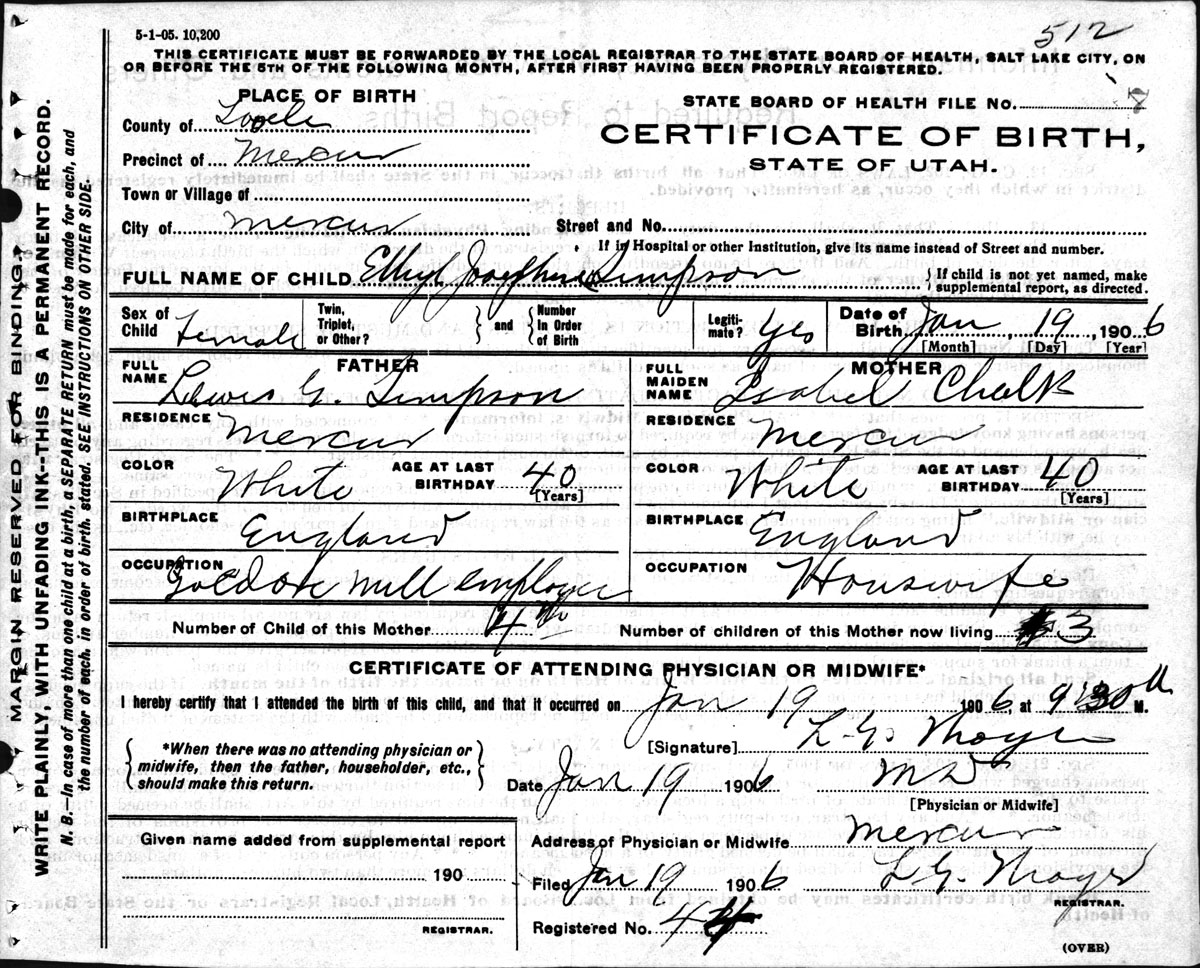 5-1-05. 10,200
512
THIS CERTIFICATE MUST BE FORWARDED BY THE LOCAL REGISTRAR TO THE STATE BOARD OF HEALTH, SALT LAKE CITY, ON
OR BEFORE THE 5TH OF THE FOLLOWING MONTH, AFTER FIRST HAVING BEEN PROPERLY REGISTERED.
PLACE OF BIRTH
STATE BOARD OF HEALTH FILE No.
County of Tooele
CERTIFICATE OF BIRTH,
Precinct of Mercur
STATE OF UTAH.
Town or Village of
City of Mercur Street and No.
If in Hospital or other Institution, give its name instead of Street and number.
FULL NAME OF CHILD Josephine Simpson { If child is not yet named, make supplemental report, as directed.
Sex of Child Female Twin, Triplet, or Other? } and { Number In Order of Birth Legiti- mate? Yes Date of Birth, Jan 19 1906
[Month] [Day] [Year]
FATHER MOTHER
FULL NAME Lewis G. Simpson FULL MAIDEN NAME Isabel Chalk
RESIDENCE Mercur RESIDENCE Mercur
COLOR White AGE AT LAST BIRTHDAY 40 [Years] COLOR White AGE AT LAST BIRTHDAY 40 [Years]
BIRTHPLACE England BIRTHPLACE England
OCCUPATION Mill employee OCCUPATION Houswife
Number of Child of this Mother 4th Number of children of this Mother now living 3
CERTIFICATE OF ATTENDING PHYSICIAN OR MIDWIFE*
I hereby certify that I attended the birth of this child, and that it occurred on Jan 19 1906, at 9:30 a M.
{ *When there was no attending physician or midwife, then the father, householder, etc., should make this return. }
[Signature] L. G.
Date Jan 19 1906 MD
[Physician or Midwife]
Given name added from supplemental report
190
REGISTRAR.
Address of Physician or Midwife Mercur
Filed Jan 19 1906 L. G.
REGISTRAR.
Registered No. 4
(OVER)
MARGIN RESERVED FOR BINDING.
WRITE PLAINLY, WITH UNFADING INK--THIS IS A PERMANENT RECORD.
N. B.--In case of more than one child at a birth, a SEPARATE RETURN must be made for each, and
the number of each, in order of birth, stated. SEE INSTRUCTIONS ON OTHER SIDE.